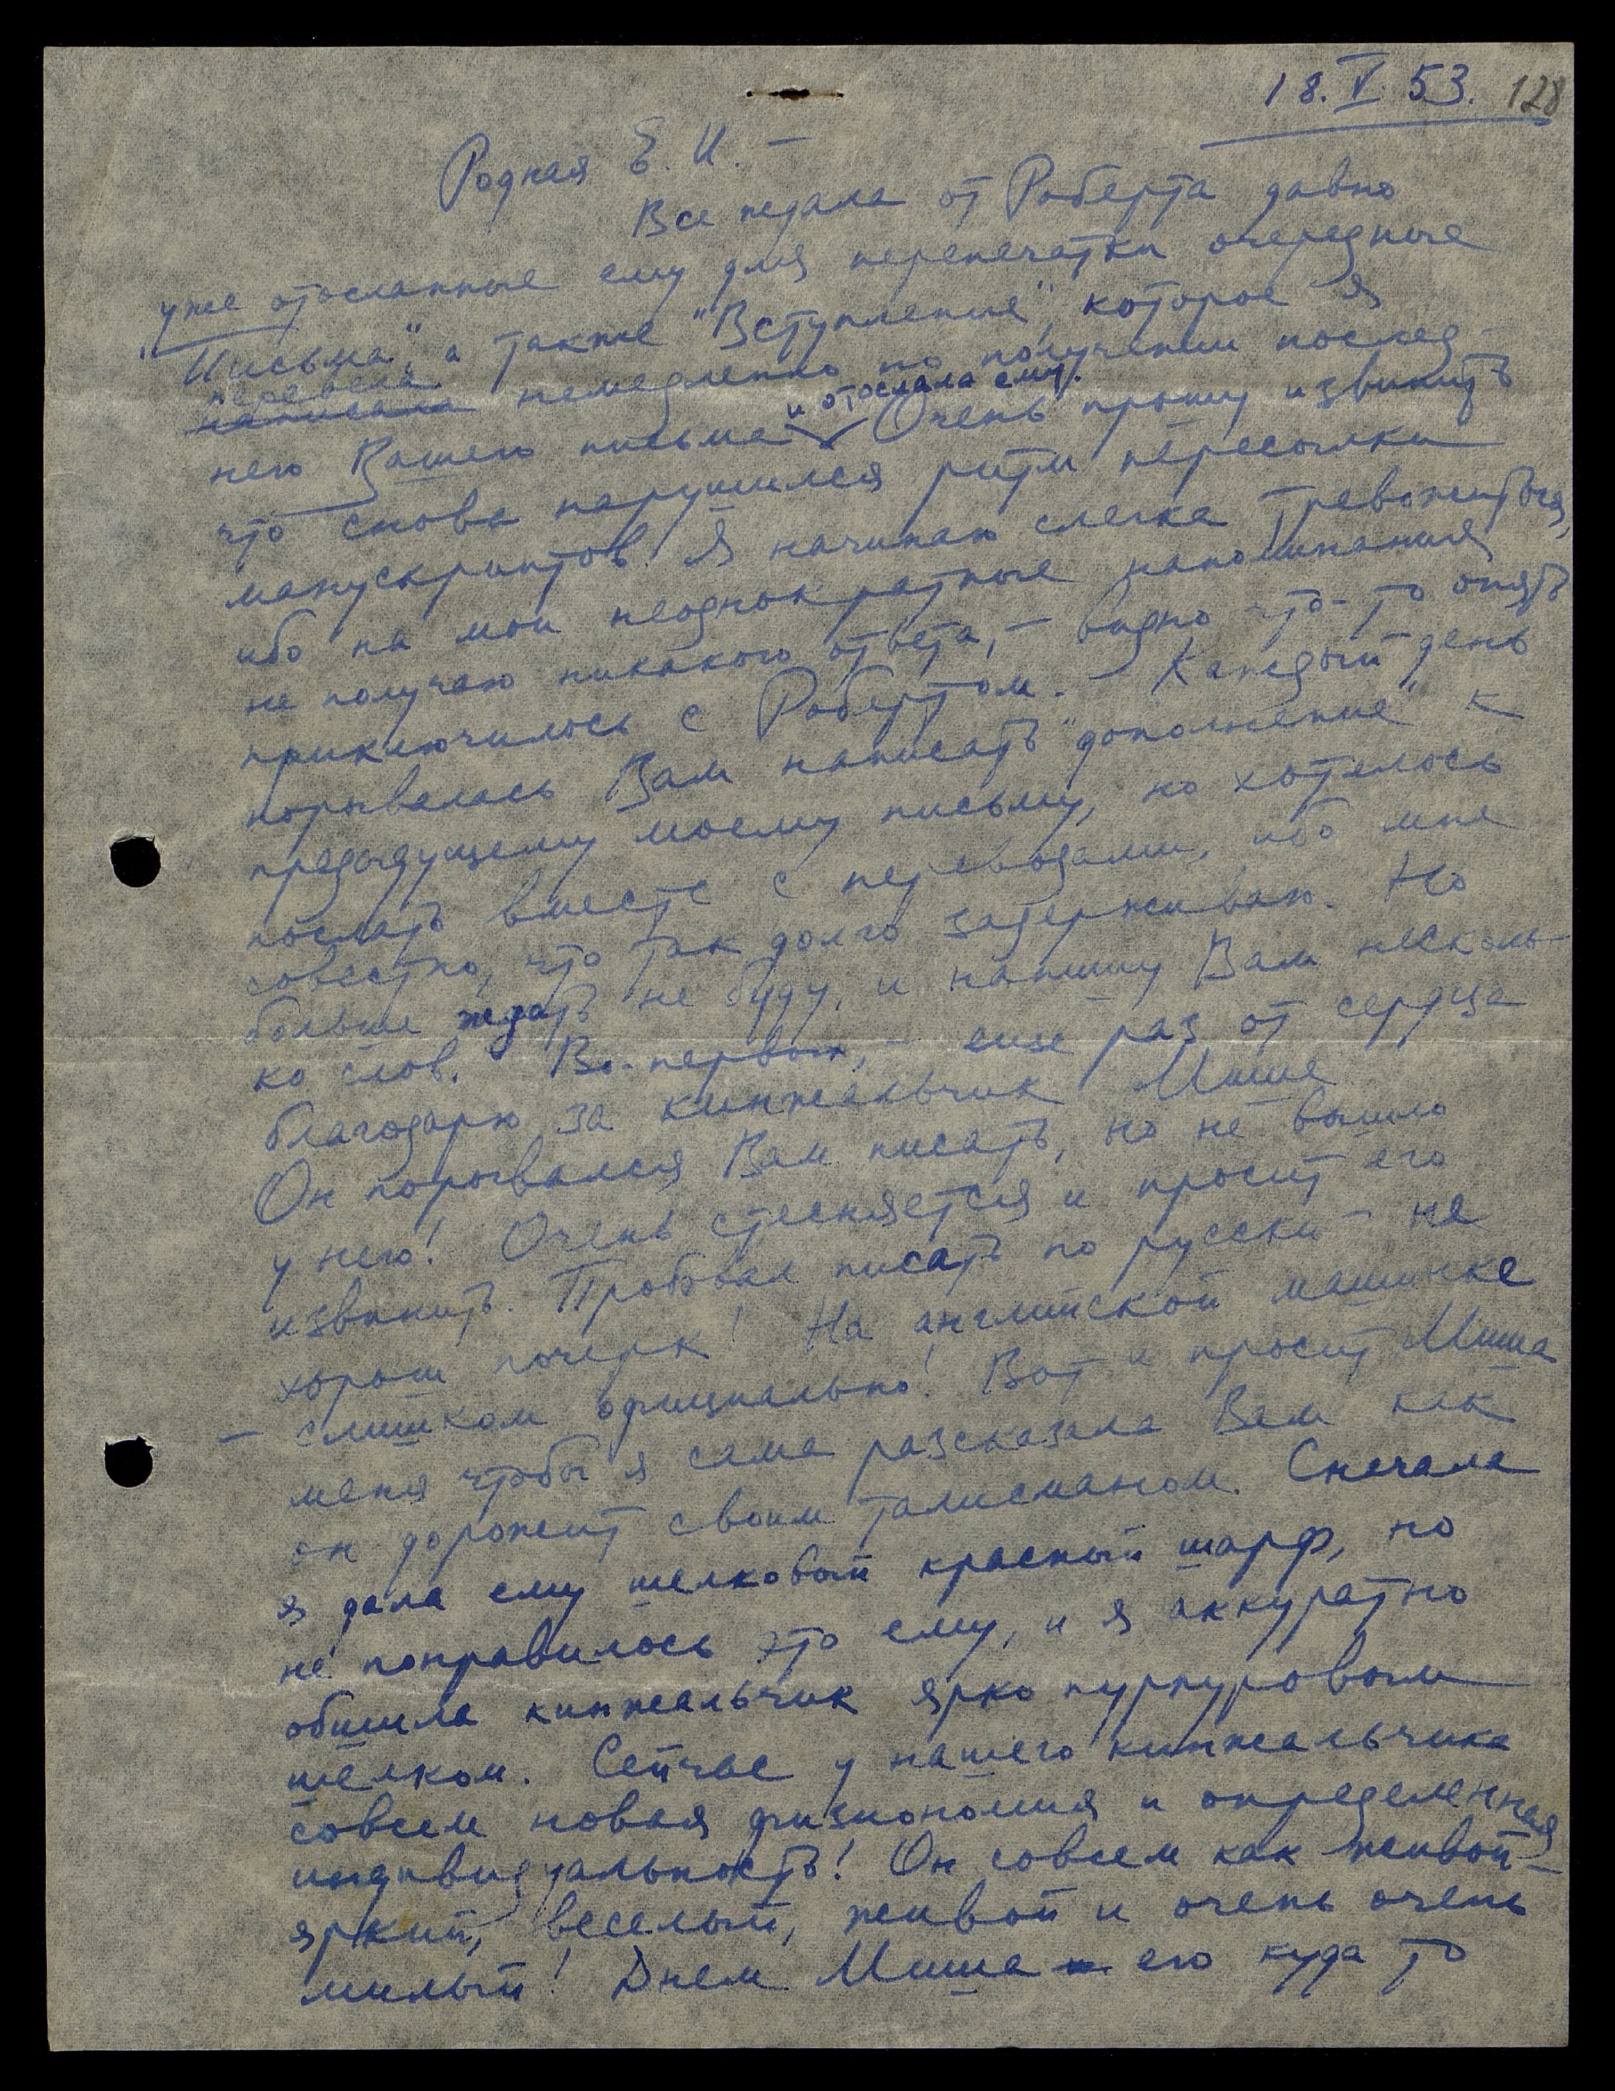 18.V.53. 128
Родная Е.И. –
Все ждала от Роберта давно
уже отосланные ему для перепечатки очередные
"Письма", а также "Вступление", которое я
перевела
написала немедленно по получении послед-
и отослала ему.
него Вашего письма Очень прошу извинить
что снова нарушился ритм пересылки
манускриптов. Я начинаю слегка тревожиться,
ибо на мои неоднократные напоминания
не получаю никакого ответа, – видно что-то опять
приключилось с Робертом. – Каждый день
порывалась Вам написать "дополнение" к
предыдущему моему письму, но хотелось
послать вместе с переводами, ибо мне
совестно, что так долго задерживаю. Но
больше ждать не буду, и напишу Вам несколь-
ко слов. Во-первых, – еще раз от сердца
благодарю за кинжальчик Мише
Он порывался Вам писать, но не вышло
у него! Очень стесняется и просит его
извинить. Пробовал писать по русски – не
хорош почерк! На английской машинке
– слишком официально! Вот и просит Миша
меня чтобы я сама разсказала Вам как
он дорожит своим талисманом. Сначала
я дала ему шелковый красный шарф, но
не понравилось это ему, и я аккуратно
обшила кинжальчик ярко пурпуровым
шелком. Сейчас у нашего кинжальчика
совсем новая физиономия и определенная
индивидуальность! Он совсем как живой –
яркий, веселый, живой и очень очень
милый! Днем Миша его куда то